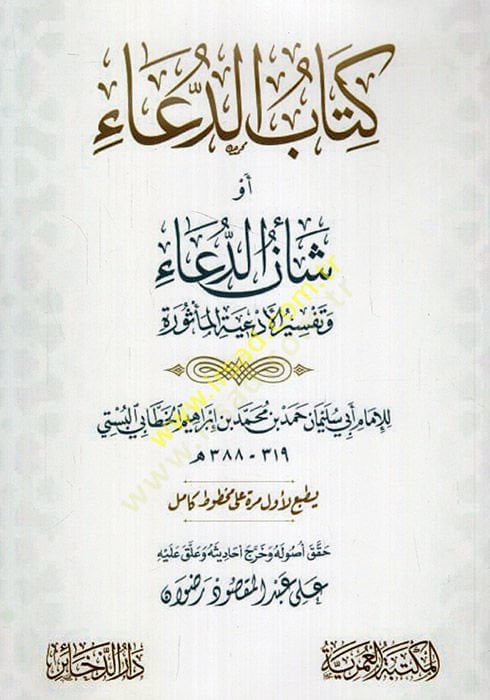 كِتَابُ الدُّعَاءِ
أَوْ
شَأْنُ الدُّعَاءِ
وَتَفْسِيرُ الْأَدْعِيَةِ الْمَأْثُورَةِ
لِلإِمَامِ أَبِي سُلَيْمَانَ حَمْدِ بْنِ مُحَمَّدِ بْنِ إِبْرَاهِيمَ الخَطَّابِيِّ البُسْتِيِّ
٣١٩ - ٣٨٨ هـ
يطبع لأول مرة على مخطوط كامل
حَقَّقَ أُصُولَهُ وَخَرَّجَ أَحَادِيثَهُ وَعَلَّقَ عَلَيْهِ
علي عبد المقصود رضوان
المكتبة العمرية
دار الذخائر